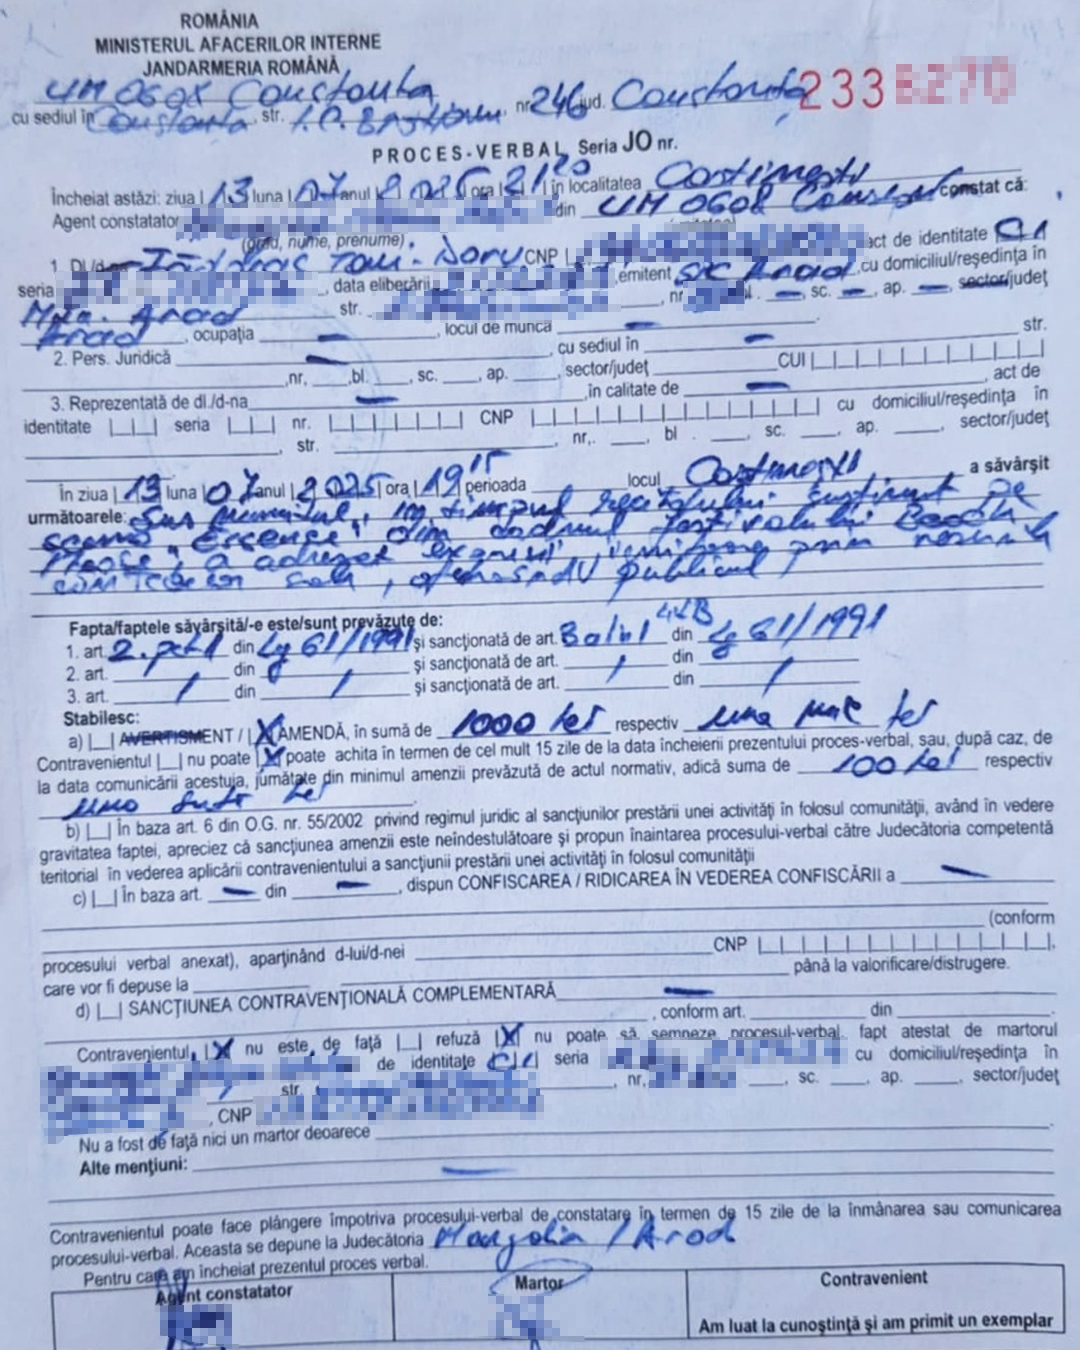 ROMÂNIA
MINISTERUL AFACERILOR INTERNE
JANDARMERIA ROMÂNĂ
UM 0608 Constanta
cu sediul în Constanta, str. nr 246 jud. Constanta 233
PROCES-VERBAL Seria JO nr.
Încheiat astăzi: ziua | 13 luna | 07 anul | 2025 ora | 21 20 | în localitatea Costinesti
Agent constatator din UM 0608 constat că:
(grad, nume, prenume)
1. Dl/d-na Doru CNP | act de identitate CI
seria , data eliberării , emitent SPC Arad, cu domiciliul/reşedinţa în
Arad str. nr bl. – sc. – , ap. – sector/judeţ
Arad , ocupaţia – , locul de muncă –
2. Pers. Juridică – , cu sediul în – str.
,nr. ,bl. , sc. , ap. , sector/judeţ CUI
3. Reprezentată de dl./d-na – ,în calitate de – , act de
identitate seria nr. CNP cu domiciliul/reşedinţa în
, str. , nr,. , bl . , sc. , ap. , sector/judeţ
În ziua | 13 luna | 07 anul | 2025 ora | 19 15 perioada locul Costinesti a săvârşit
următoarele: Sus numitul, in timpul recitalului sustinut pe
scena din cadrul festivalului Beach
Please, a adresat expresii prin
, public,
Fapta/faptele săvârşită/-e este/sunt prevăzute de:
1. art. 2. pct 1 din Lg 61/1991 şi sancţionată de art. 3 alin 1 lit B din Lg 61/1991
2. art. din şi sancţionată de art. / din
3. art. / din / şi sancţionată de art. din /
Stabilesc:
a) |_| AVERTISMENT / |X| AMENDĂ, în sumă de 1000 lei respectiv una mie lei
Contravenientul |_| nu poate |X| poate achita în termen de cel mult 15 zile de la data încheierii prezentului proces-verbal, sau, după caz, de
la data comunicării acestuja, jumătate din minimul amenzii prevăzută de actul normativ, adică suma de 100 lei respectiv
una sută lei
b) |_| În baza art. 6 din O.G. nr. 55/2002 privind regimul juridic al sancţiunilor prestării unei activităţi în folosul comunităţii, având în vedere
gravitatea faptei, apreciez că sancţiunea amenzii este neîndestulătoare şi propun înaintarea procesului-verbal către Judecătoria competentă
teritorial în vederea aplicării contravenientului a sancţiunii prestării unei activităţi în folosul comunităţii
c) |_| În baza art. – din – , dispun CONFISCAREA / RIDICAREA ÎN VEDEREA CONFISCĂRII a –
(conform
procesului verbal anexat), aparţinând d-lui/d-nei CNP
care vor fi depuse la până la valorificare/distrugere.
d) |_| SANCŢIUNEA CONTRAVENŢIONALĂ COMPLEMENTARĂ –
, conform art. din
Contravenientul, |X| nu este, de faţă |_| refuză |X| nu poate să semneze procesul-verbal, fapt atestat de martorul
de identitate CI seria cu domiciliul/reşedinţa în
/ str. , nr, , sc. , ap. , sector/judeţ
, CNP
Nu a fost de faţă nici un martor deoarece
Alte menţiuni: –
Contravenientul poate face plângere împotriva procesului-verbal de constatare în termen de 15 zile de la înmânarea sau comunicarea
procesului-verbal. Aceasta se depune la Judecătoria Mangalia / Arad
Pentru care am încheiat prezentul proces verbal.
Agent constatator Martor Contravenient
Am luat la cunoştinţă şi am primit un exemplar